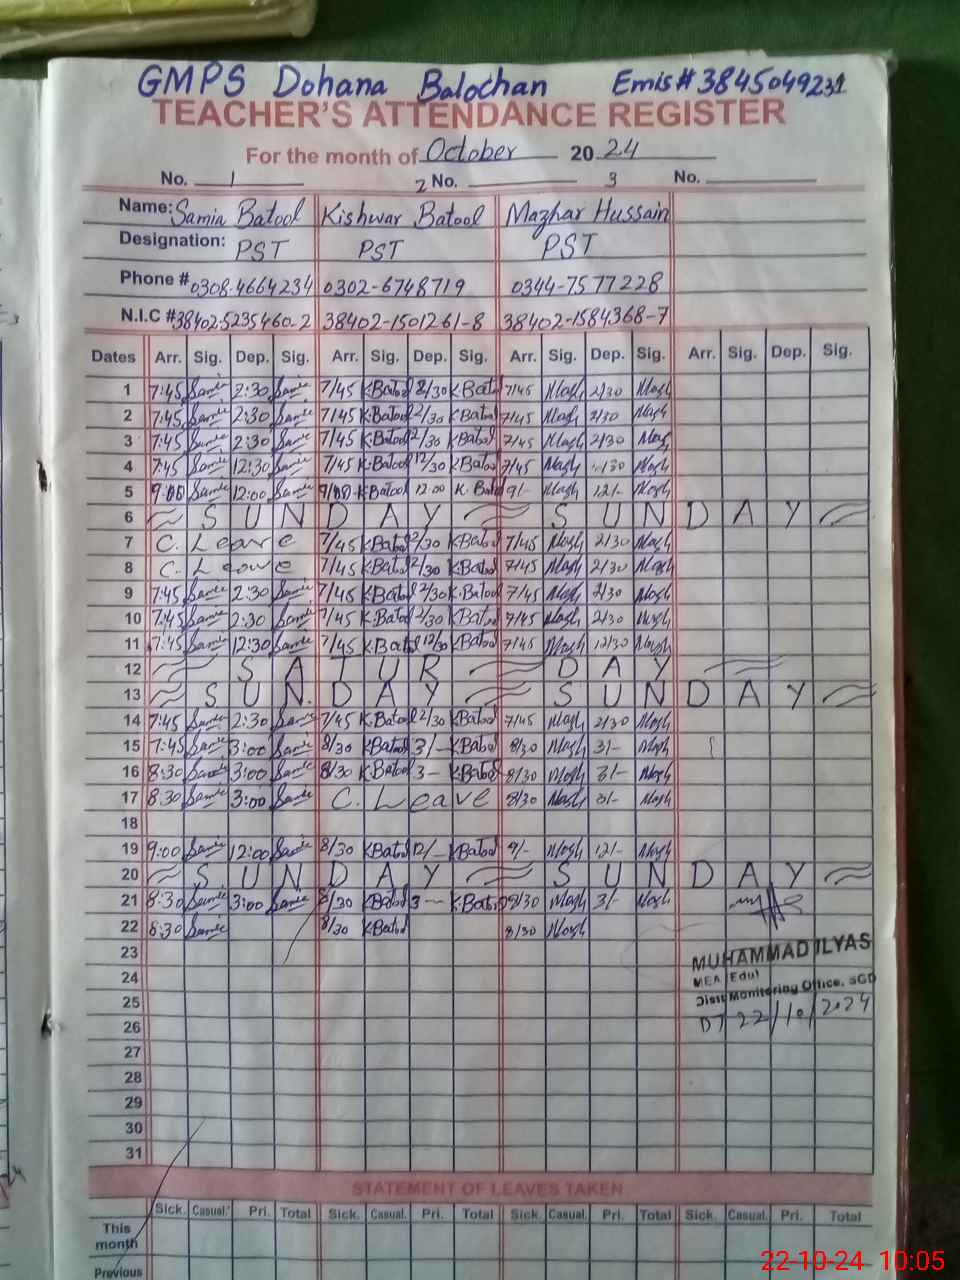 GMPS Dohana Balochan Emis# 3845049231
TEACHER'S ATTENDANCE REGISTER
For the month of October 2024
No. 1 2 No. 3 No.
Name: Samia Batool Kishwar Batool Mazhar Hussain
Designation: PST PST PST
Phone # 0308-4664234 0302-6748719 0344-7577228
N.I.C # 38402-5235460-2 38402-1501261-8 38402-1584368-7
Dates Arr. Sig. Dep. Sig. Arr. Sig. Dep. Sig. Arr. Sig. Dep. Sig. Arr. Sig. Dep. Sig.
1 7:45 Samia 2:30 Samia 7/45 K.Batool 2/30 K.Batool 7/45 2/30
2 7:45 Samia 2:30 Samia 7/45 K.Batool 2/30 K.Batool 7/45 2/30
3 7:45 Samia 2:30 Samia 7/45 K.Batool 2/30 K.Batool 7/45 2/30
4 7:45 Samia 12:30 Samia 7/45 K.Batool 12/30 K.Batool 7/45
5 9:00 Samia 12:00 Samia 9/00 K.Batool 12:00 K.Batool 9/- 12/-
6 S U N D A Y S U N D A Y
7 C. Leave 7/45 K.Batool 2/30 K.Batool 7/45 2/30
8 C. Leave 7/45 K.Batool 2/30 K.Batool 7/45 2/30
9 7:45 Samia 2:30 Samia 7/45 K.Batool 2/30 K.Batool 7/45 2/30
10 7:45 Samia 2:30 Samia 7/45 K.Batool 2/30 K.Batool 7/45 2/30
11 7:45 Samia 12:30 Samia 7/45 K.Batool 12/30 K.Batool 7/45 12/30
12 S A T U R D A Y
13 S U N. D A Y S U N D A Y
14 7:45 Samia 2:30 Samia 7/45 K.Batool 2/30 K.Batool 7/45 2/30
15 7:45 Samia 3:00 Samia 8/30 K.Batool 3/- K.Batool 8/30 3/-
16 8:30 Samia 3:00 Samia 8/30 K.Batool 3- K.Batool 8/30 3/-
17 8:30 Samia 3:00 Samia C. Leave 8/30 3/-
18
19 9:00 Samia 12:00 Samia 8/30 K.Batool 12/- K.Batool 9/- 12/-
20 S U N D A Y S U N D A Y
21 8:30 Samia 3:00 Samia 8/30 K.Batool 3- K.Batool 8/30 3/-
22 8:30 Samia 8/30 K.Batool 8/30
23
MUHAMMAD ILYAS
24
MEA (Edu)
25
Distt Monitoring Office, SGD
26
DT 22/10/2024
27
28
29
30
31
STATEMENT OF LEAVES TAKEN
Sick. Casual. Pri. Total Sick. Casual. Pri. Total Sick. Casual. Pri. Total Sick. Casual. Pri. Total
This
month
Previous
22-10-24 10:05